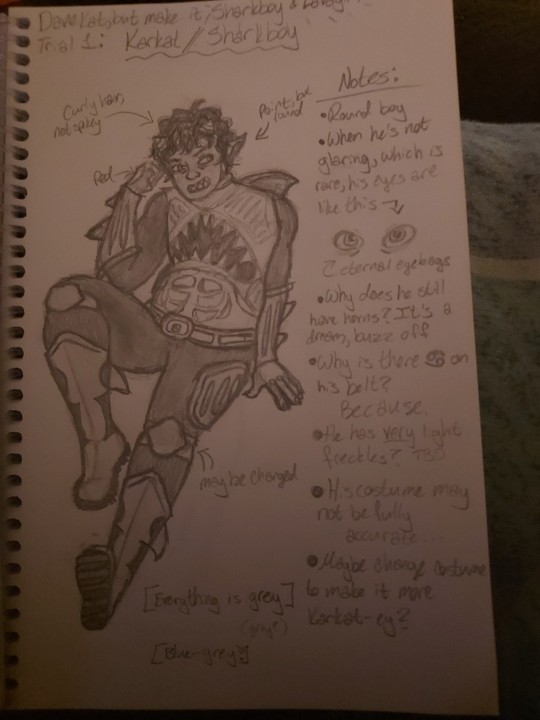 DaveKat, but make it Sharkboy &
Trial 1: Karkat // Sharkboy
Notes:
Curly hair,
not spikey
Point: but
round
Red
• Round boy
• When he's not
glaring, which is
rare, his eyes are
like this
eternal eyebags
• Why does he still
have horns? It's a
dream, buzz off
• Why is there ♋ on
his belt?
Because.
• He has very light
freckles? TBD
• His costume may
not be fully
accurate...
• Maybe change costume
to make it more
Karkat-ey?
may be changed
[Everything is grey]
(gray?)
[Blue-grey?]